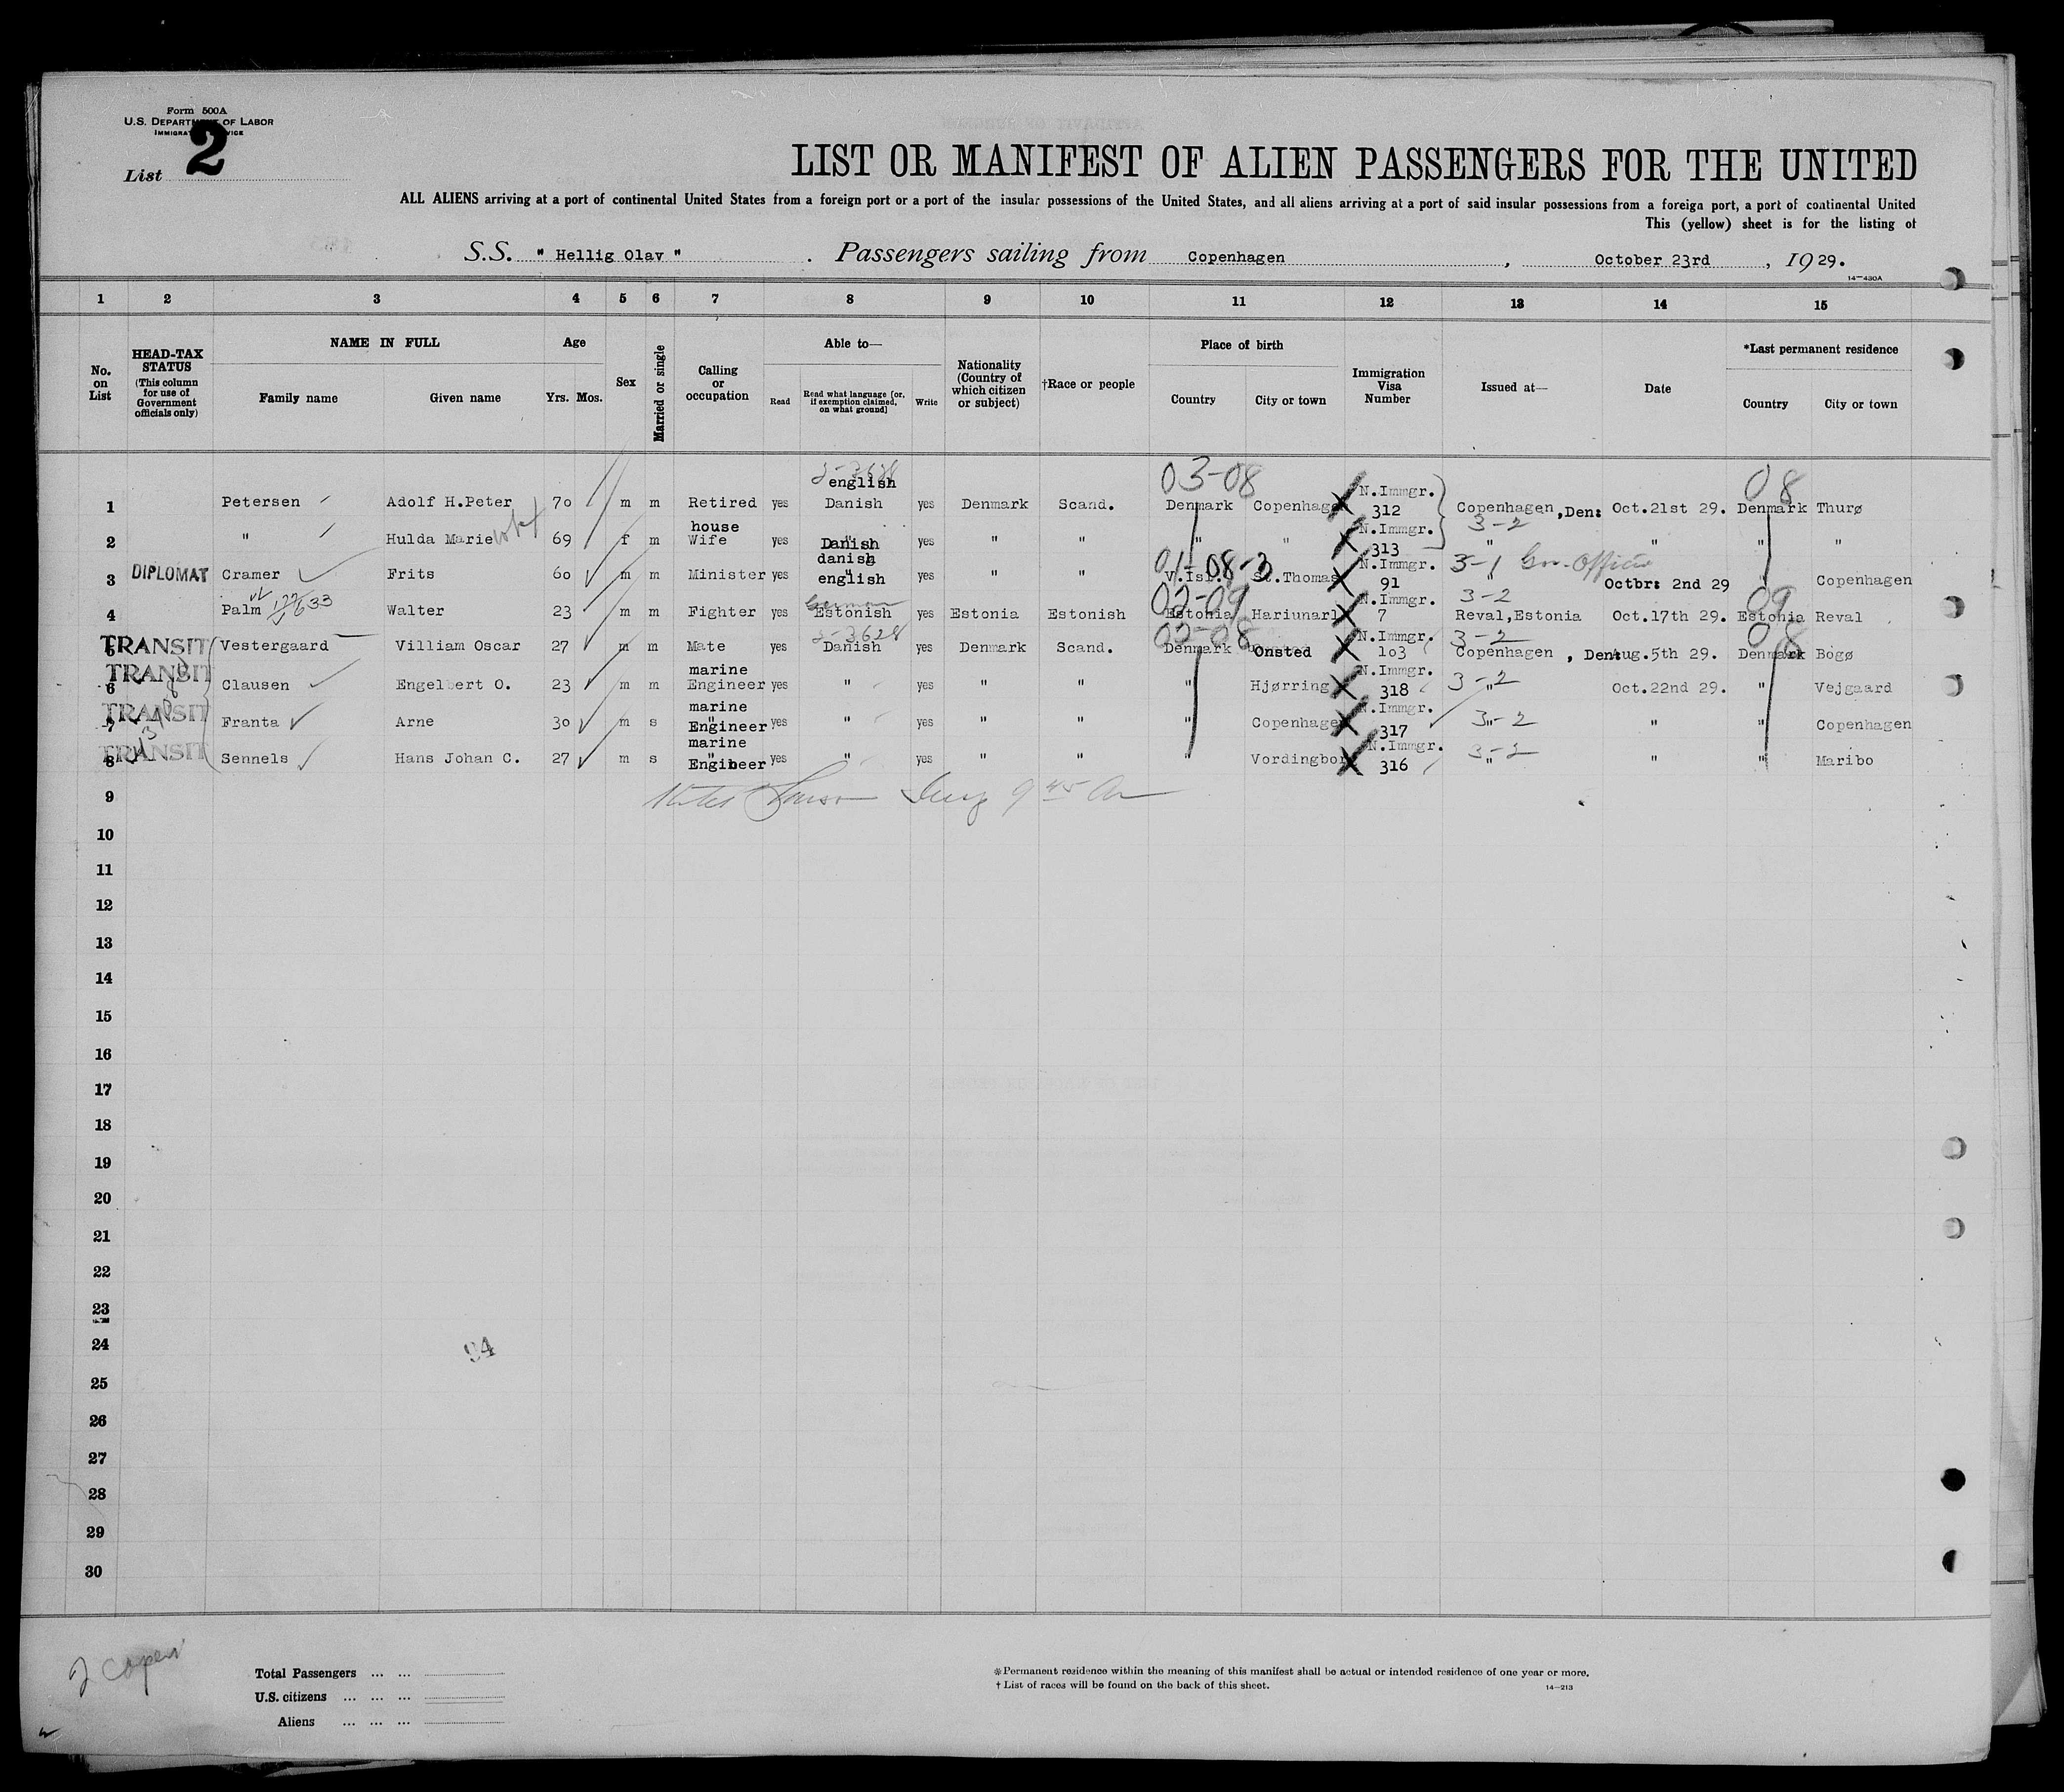 Form 500A
U.S. DEPARTMENT OF LABOR
IMMIGRATION SERVICE
List 2
LIST OR MANIFEST OF ALIEN PASSENGERS FOR THE UNITED
ALL ALIENS arriving at a port of continental United States from a foreign port or a port of the insular possessions of the United States, and all aliens arriving at a port of said insular possessions from a foreign port, a port of continental United
This (yellow) sheet is for the listing of
S.S. " Hellig Olav " . Passengers sailing from Copenhagen , October 23rd , 1929.
14—430A
1 2 3 4 5 6 7 8 9 10 11 12 13 14 15
No. on List
HEAD-TAX STATUS (This column for use of Government officials only)
NAME IN FULL
Family name Given name
Age
Yrs. Mos.
Sex
Married or single
Calling or occupation
Able to—
Read Read what language [or, if exemption claimed, on what ground] Write
Nationality (Country of which citizen or subject)
†Race or people
Place of birth
Country City or town
Immigration Visa Number
Issued at—
Date
*Last permanent residence
Country City or town
3-3628 03-08 08
english N.Immgr.
1 Petersen Adolf H.Peter 70 m m Retired yes Danish yes Denmark Scand. Denmark Copenhage 312 Copenhagen,Den: Oct.21st 29. Denmark Thurø
house N.Immgr. 3-2
2 " Hulda Marie 69 f m Wife yes Danish yes " " " " 313 " " " "
danish 01-08-3 N.Immgr. 3-1 Gov. Office
3 DIPLOMAT Cramer Frits 60 m m Minister yes " english yes " " V.Isl. St.Thomas 91 " Octbr: 2nd 29 " Copenhagen
German 02-09 N.Immgr. 3-2 09
4 Palm 633 Walter 23 m m Fighter yes Estonish yes Estonia Estonish Estonia Hariunarl 7 Reval,Estonia Oct.17th 29. Estonia Reval
3-3628 03-08 N.Immgr. 3-2 08
5 TRANSIT Vestergaard Villiam Oscar 27 m m Mate yes Danish yes Denmark Scand. Denmark Onsted 103 Copenhagen , Den: Aug.5th 29. Denmark Bogø
TRANSIT marine N.Immgr. 3-2
6 Clausen Engelbert O. 23 m m Engineer yes " yes " " " Hjørring 318 " Oct.22nd 29. " Vejgaard
TRANSIT marine N.Immgr. 3-2
7 Franta Arne 30 m s Engineer yes " yes " " " Copenhagen 317 " " " Copenhagen
TRANSIT marine N.Immgr. 3-2
8 Sennels Hans Johan C. 27 m s Engineer yes " yes " " " Vordingbor 316 " " " Maribo
9
10
11
12
13
14
15
16
17
18
19
20
21
22
23
24
94
25
26
27
28
29
30
Total Passengers ... ...
U.S. citizens ... ... ...
Aliens ... ... ...
*Permanent residence within the meaning of this manifest shall be actual or intended residence of one year or more.
† List of races will be found on the back of this sheet.
14—213